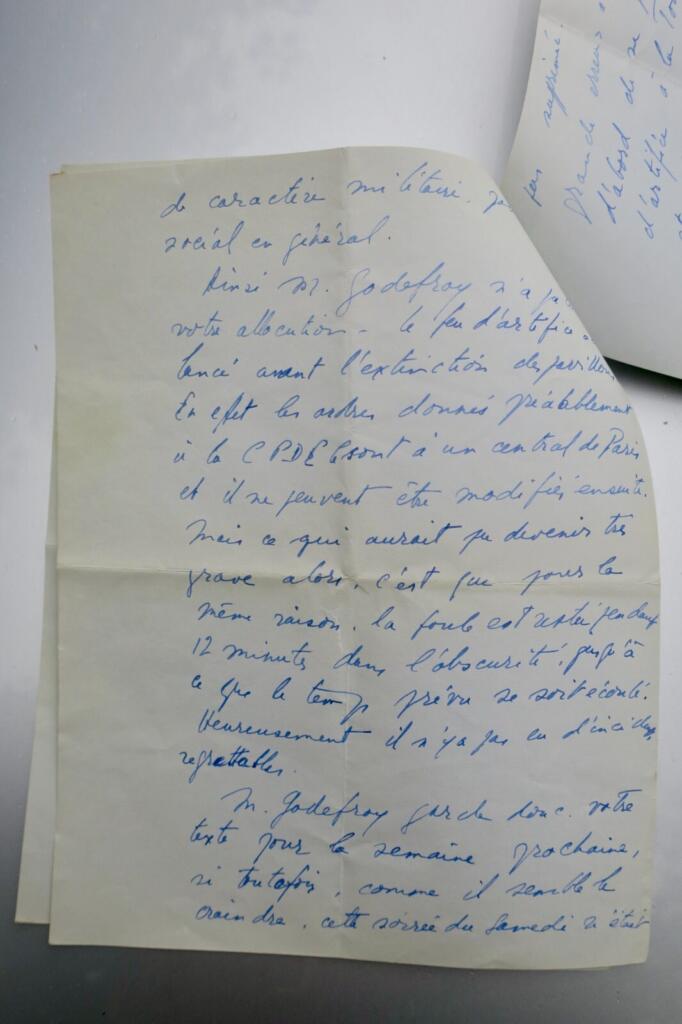 de caractère militaire,
social en général.
Ainsi M. Godefroy n'a
votre allocution - le feu d'artifice
lancé avant l'extinction des pavillons
En effet les ordres donnés préalablement
à la CPDE sont à un central de Paris
et il ne peuvent être modifiés ensuite.
Mais ce qui aurait pu devenir très
grave alors, c'est que pour la
même raison, la foule est restée pendant
12 minutes dans l'obscurité, jusqu'à
ce que le temps prévu se soit écoulé.
Heureusement il n'y a pas eu d'incidents
regrettables.
M. Godefroy garde donc votre
texte pour la semaine prochaine,
si toutefois, comme il semble le
craindre, cette soirée du Samedi n'était
feu supprimé.
grande erreur
d'abord de se
d'artifice à la Tour
et